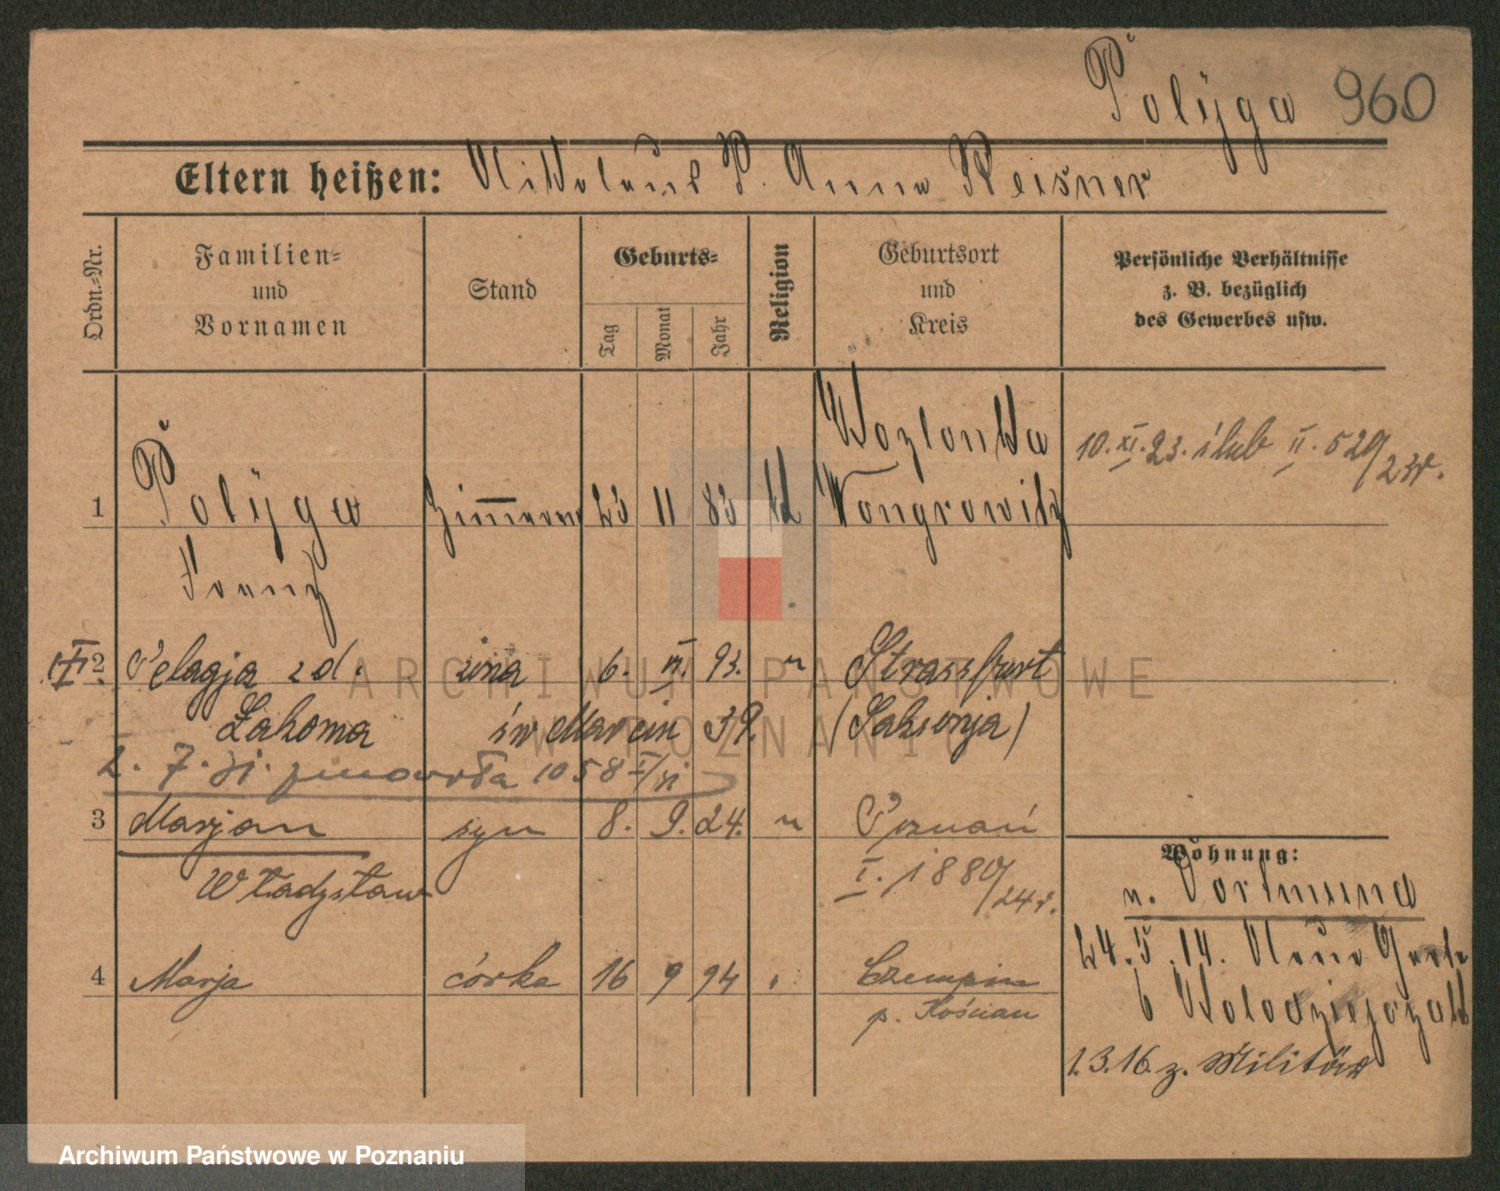 Polÿga 960
Eltern heißen: P. Anna Reisner
Ordn.-Nr.
Familien-
und
Vornamen
Stand
Geburts-
Tag
Monat
Jahr
Religion
Geburtsort
und
Kreis
Persönliche Verhältnisse
z. B. bezüglich
des Gewerbes usw.
1 Polÿga 23 11 83 Wongrowitz
Franz
10. XI. 23. ślub II. 529/23r.
2 Pelagja z d. żona 6. VI. 93. " Strassfurt
Lakoma św Marcin 39. (Saksonja)
zmarła 1058
3 Marjan syn 8. 9. 24. " Poznań
Władysław I. 1880/24r.
4 Marja córka 16 9 94 Czempin
p. Kościan
Wohnung:
n. Dortmund
24. 14. Neue
b
1.3.16. z. Militär
ARCHIWUM PAŃSTWOWE
W POZNANIU
Archiwum Państwowe w Poznaniu